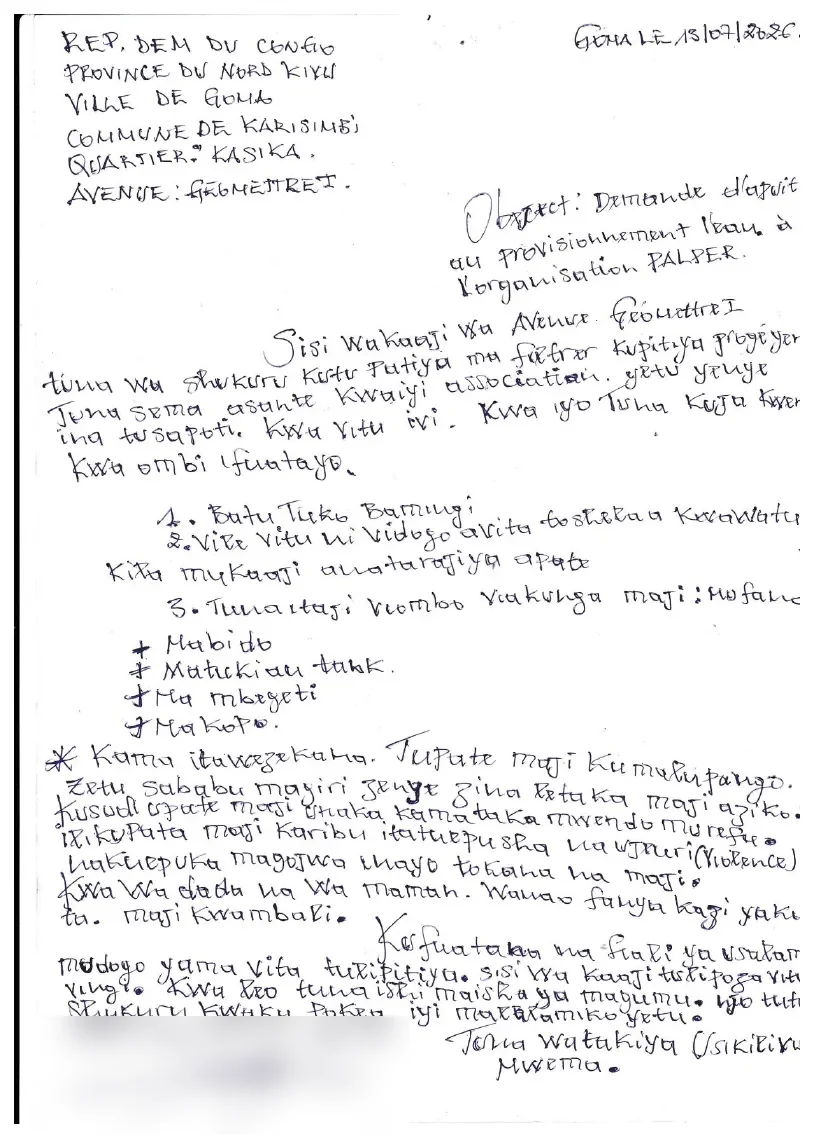 REP. DEM DU CONGO
PROVINCE DU NORD KIVU
VILLE DE GOMA
COMMUNE DE KARISIMBI
QUARTIER: KASIKA.
AVENUE: GEOMETTRE I.
GOMA LE 13/07/2026.
Object: Demande d'apuit
au provisionnement l'eau à
l'organisation PALPER.
Sisi wakaaji wa Avenue Géomettre I
tuna wa shukuru kutu patiya ma kupitiya
Tuna sema asante kwaiyi association yetu yenye
ina tusapoti. Kwa vitu ivi. Kwa iyo Tuna kuja kwen
Kwa ombi ifuatayo.
1. Batu Tuko Bamingi
2. Vile vitu ni vidogo avita toshelaa kwawatu
Kila mukaaji anatarajiya apate
3. Tunaitaji viombo viakunga maji: Mufano
+ Mabido
+ tank.
+ Ma mbegeti
+ Makopo.
* Kama itawezekana. Tupate maji Kumalupango.
zetu sababu magiri zenye zina letaka maji aziko.
kusudi upate maji unaka kamataka mwendo murefu.
ile kupata maji karibu itatuepusha na (violence)
nakuepuka magojwa inayo tokana na maji.
Kwa wa dada na wa maman. Wanao fanya kazi yaku
ta. maji kwambali.
Kufuatana na hali ya usalam
mudogo yama vita tulipitiya. sisi wa kaaji tulipoza vitu
vingi. Kwa leo tuna ishi maisha ya magumu. iyo tuta
Shukuru kwaku pokea iyi malalamiko yetu.
Tuna watakiya Usikilivu
Mwema.